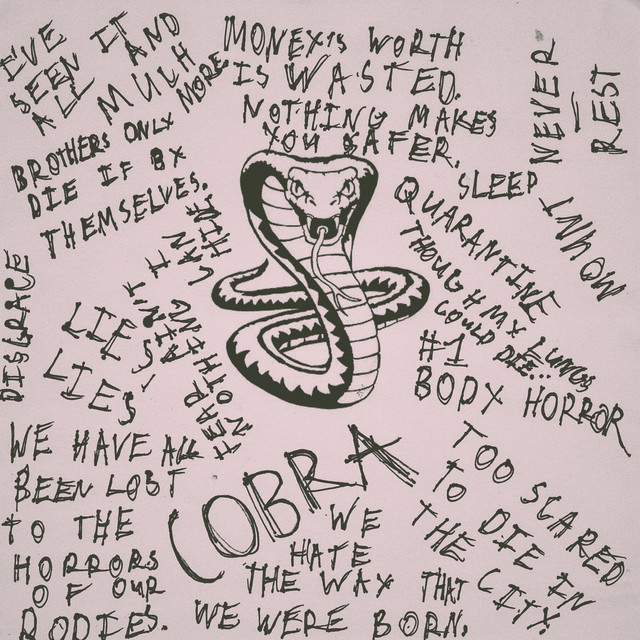 I'VE
SEEN IT
ALL AND
MUCH
MORE
MONEY IS WORTH
IS WASTED.
NOTHING MAKES
YOU SAFER.
NEVER
REST
BROTHERS ONLY
DIE IF BY
THEMSELVES.
SLEEP
QUARANTINE
THOUGH MY LUNGS
COULD DIE..
DISGRACE
LIES
LIES
FEAR
NOTHING
#1
BODY HORROR
WE HAVE ALL
BEEN LOST
TO THE
HORRORS
OF OUR
BODIES.
COBRA
WE
HATE
THE WAY THAT
WE WERE BORN.
TOO SCARED
TO DIE IN
THE CITY